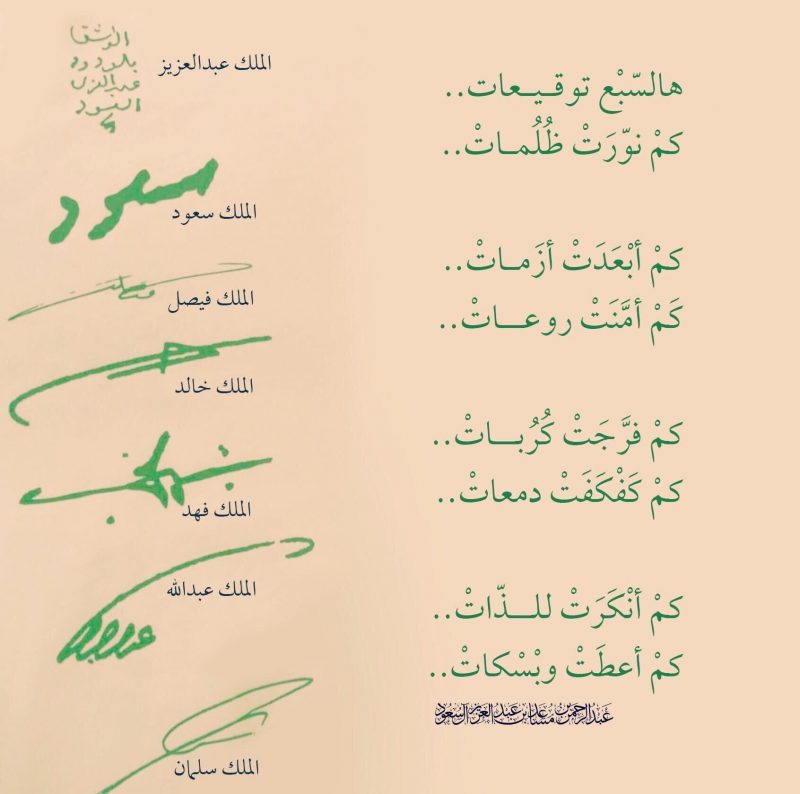 هالسّبْع توقـيـعات..
كمْ نوّرَتْ ظُلُمـاتْ..
كمْ أبْعَدَتْ أزَمـاتْ..
كَمْ أمَّنَتْ روعـــاتْ..
كمْ فرَّجَتْ كُرُبــاتْ..
كمْ كَفْكَفَتْ دمعاتْ..
كمْ أنْكَرَتْ للــذّاتْ..
كمْ أعطَتْ وبْسْكاتْ..
عبدالرحمن بن مساعد بن عبدالعزيز آل سعود
الملك عبدالعزيز
الملك سعود
سعود
الملك فيصل
الملك خالد
الملك فهد
الملك عبدالله
الملك سلمان